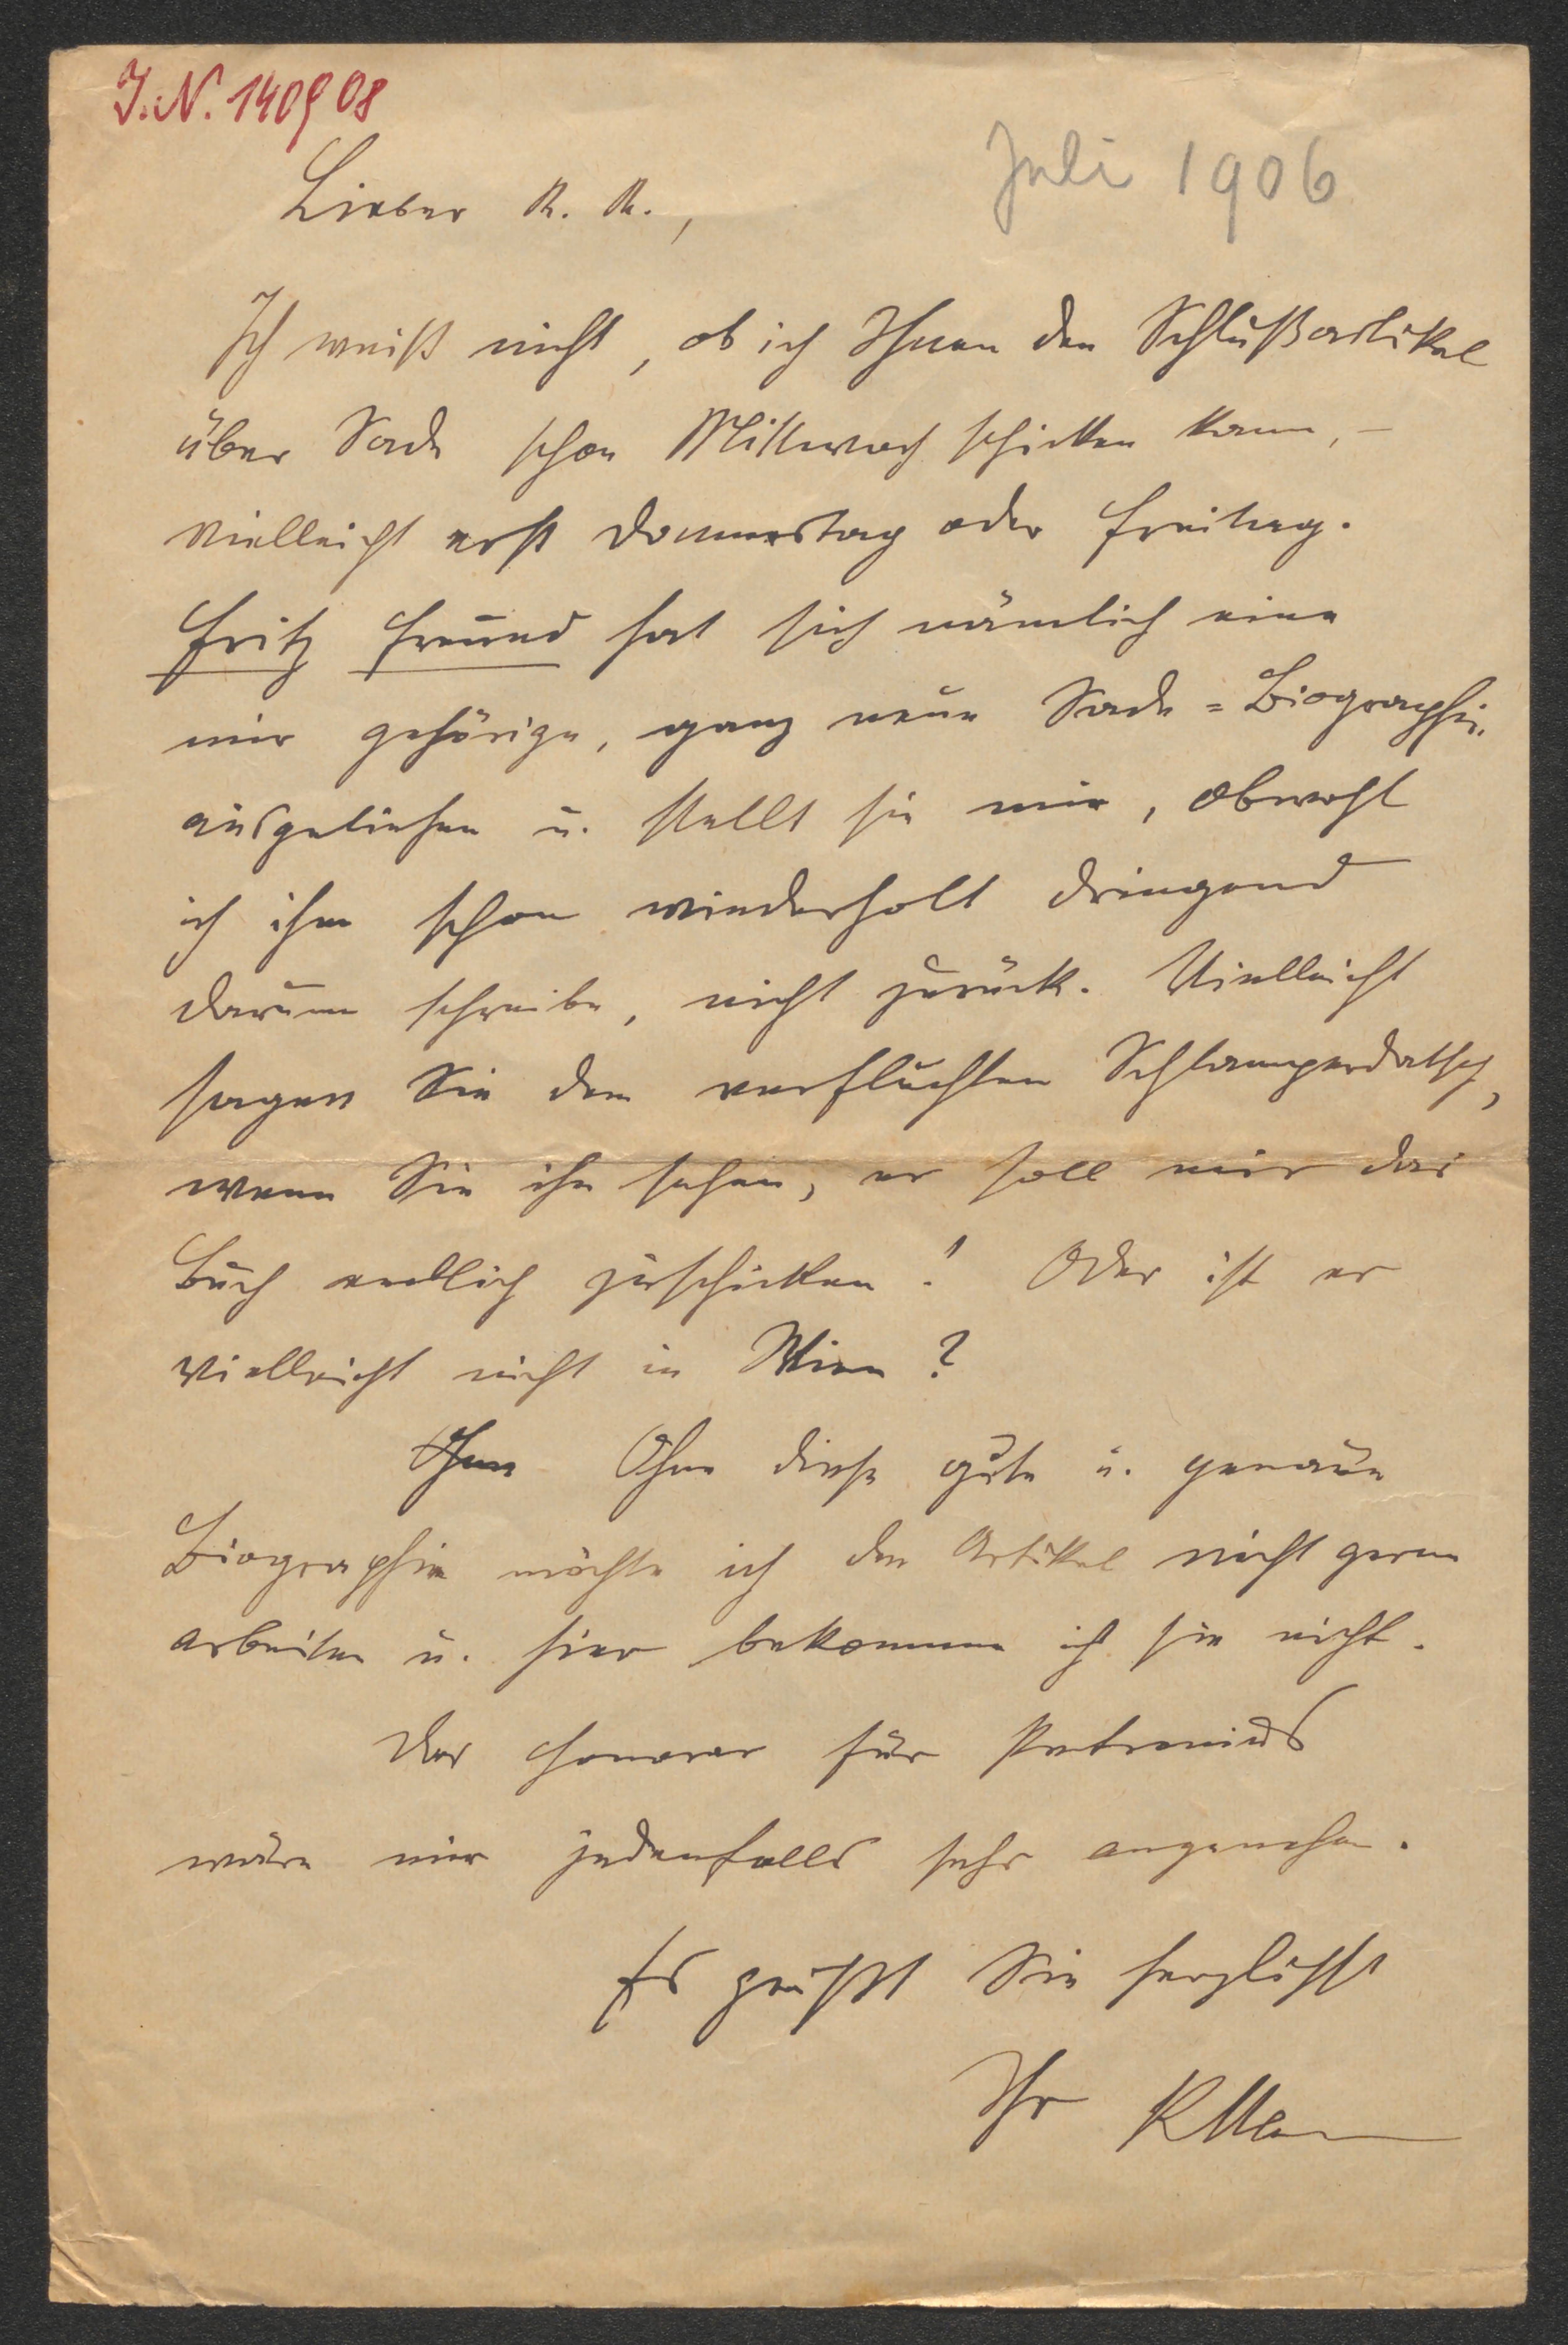 I.N. 140908
Juli 1906
Lieber K. K.,
Ich weiß nicht, ob ich Ihnen den Schlußartikel
über Sade schon Mittwoch schicken kann, –
vielleicht erst Donnerstag oder Freitag.
Fritz Freund hat sich nämlich eine
mir gehörige, ganz neue Sade=Biographie
ausgeliehen u. stellt sie mir, obwohl
ich ihm schon wiederholt dringend
darum schreibe, nicht zurück. Vielleicht
sagen Sie dem verfluchten Schlamperdatsch,
wenn Sie ihn sehen, er soll mir das
Buch endlich zuschicken! Oder ist er
vielleicht nicht in Wien?
Ohne Ohne diese gute u. genaue
Biographie möchte ich den Artikel nicht gern
arbeiten u. hier bekomme ich sie nicht.
Das Honorar für Petronius
wäre mir jedenfalls sehr angenehm.
Es grüßt Sie herzlichst
Ihr